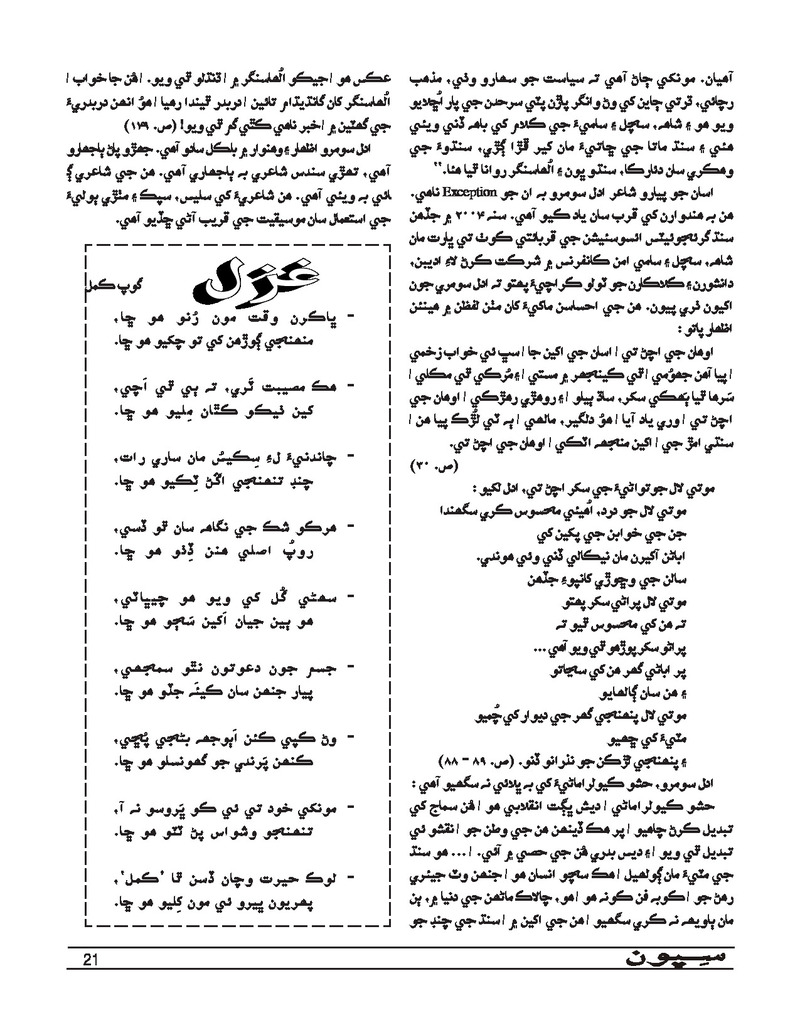 آهيان. مونکي ڄاڻ آهي ته سياست جو سهارو وٺي، مذهب
رچائي، ڌرتي ڄاين کي وڻ وانگر پاڙن پٽي سرحدن جي پار اُڇلايو
ويو هو ۽ شاهه، سچل ۽ سامي جي ڪلام کي باهه ڏني ويئي
هئي ۽ سنڌ ماتا جي ڇاتيءَ مان کير ڦڙا ڳڙي، سنڌوءَ جي
وهڪري سان دئارڪا، سنڌو ڀون ۽ الهاسنگر روانا ٿيا هئا.“
اسان جو پيارو شاعر ادل سومرو به ان جو Exception ناهي.
هن به هندوارن کي قرب سان ياد ڪيو آهي. سنه ۲۰۰۴ ۾ جڏهن
سنڌ گرئجوئيٽس ائسوسئيشن جي قرباتي ڪوٺ تي ڀارت مان
شاهه، سچل ۽ سامي امن ڪانفرنس ۾ شرڪت ڪرڻ لاءِ اديبن،
دانشورن ۽ ڪلاڪارن جو ٽولو ڪراچيءَ پهتو ته ادل سومري جون
اکيون ٺري پيون. هن جي احساسن ماکيءَ کان مٺن لفظن ۾ هيئن
اظهار پاتو :
اوهان جي اچڻ تي / اسان جي اکين جا / سڀ ئي خواب زخمي
/ پيا آهن جهومي / ٿي ڪينجهر ۾ مستي / ۽ مُرڪي ٿي مڪلي /
سَرها ٿيا ٻَهڪي سکر، ساڌ ٻيلو / ۽ روهڙي رهڙڪي / اوهان جي
اچڻ تي / وري ياد آيا / هوُ دلگير، مالهي / ٻه ٽي لُڙڪ پيا هن /
سنڌي امڙ جي / اکين منجهه اٽڪي / اوهان جي اچڻ تي.
(ص. ۳۰)
موتي لال جوتواڻيءَ جي سکر اچڻ تي، ادل لکيو :
موتي لال جو درد، اُهيئي محسوس ڪري سگهندا
جن جي خوابن جي پکين کي
اباڻن آکيرن مان نيڪالي ڏني وئي هوندي.
سالن جي وڇوڙي کانپوءِ جڏهن
موتي لال پراڻي سکر پهتو
ته هن کي محسوس ٿيو ته
پراڻو سکر پوڙهو ٿي ويو آهي...
پر اباڻي گهر هن کي سڃاتو
۽ هن سان ڳالهايو
موتي لال پنهنجي گهر جي ديوار کي چُميو
مٽيءَ کي ڇهيو
۽ پنهنجي لڙڪن جو نذرانو ڏنو. (ص. ۸۹ - ۸۸)
ادل سومرو، حشو ڪيولراماڻيءَ کي به ڀلائي نه سگهيو آهي :
حشو ڪيولراماڻي / ديش ڀڳت انقلابي هو / هُن سماج کي
تبديل ڪرڻ چاهيو / پر هڪ ڏينهن هن جي وطن جو / نقشو ئي
تبديل ٿي ويو / ۽ ديس بدري هُن جي حصي ۾ آئي. / ... هو سنڌ
جي مٽيءَ مان ڳوليل / هڪ سچو انسان هو / جنهن وٽ جيئري
رهڻ جو / ڪوبه فن ڪونه هو / هو، چالاڪ ماڻهن جي دنيا ۾، ٻن
مان ٻاويهه نه ڪري سگهيو / هن جي اکين ۾ / سنڌ جي چنڊ جو
عڪس هو / جيڪو الهاسنگر ۾ / ڌنڌلو ٿي ويو. / هُن جا خواب /
الهاسنگر کان گانڌيڌام تائين / دربدر ٿيندا رهيا / هوُ انهن دربدريءَ
جي گهٽين ۾ / خبر ناهي ڪٿي گم ٿي ويو! (ص. ۱۷۹)
ادل سومرو اظهار ۽ وهنوار ۾ بلڪل سادو آهي. جهڙو پاڻ ٻاجهارو
آهي، تهڙي سندس شاعري به ٻاجهاري آهي. هن جي شاعري ڳ
مائي به ويئي آهي. هن شاعريءَ کي سليس، سبڪ ۽ مٺڙي ٻوليءَ
جي استعمال سان موسيقيت جي قريب آڻي ڇڏيو آهي.
غزل
گوپ ڪمل
- ڀاڪرن وقت مون رُنو هو ڇا،
منهنجي ڳوڙهن کي تو چکيو هو ڇا.
- هڪ مصيبت ٽَري، ته ٻي ٿي اَچي،
کين ٺيڪو ڪٿان مِليو هو ڇا.
- چاندنيءَ لءِ سِڪيسُ مان ساري رات،
چنڊ تنهنجي اڱڻ ٽِڪيو هو ڇا.
- هرڪو شڪ جي نگاهه سان ٿو ڏسي،
روپُ اصلي هنن ڏِٺو هو ڇا.
- سهڻي گُل کي ويو هو چيڀاٽي،
هو ٻين جيان اَکين سَڄو هو ڇا.
- جسم جون دعوتون نٿو سمجهي،
پيار جنهن سان ڪيئَه جڏو هو ڇا.
- وڻ ڪپي ڪنن اَٻوجهه بڻجي پُڇي،
ڪنهن پَرندي جو گهونسلو هو ڇا.
- مونکي خود تي ئي ڪو ڀَروسو نه آ،
تنهنجو وشواس پڻ ٽٽو هو ڇا.
- لوڪ حيرت وچان ڏسن ٿا 'ڪمل'،
پهريون ڀيرو ئي مون کِليو هو ڇا.
21
سِپون